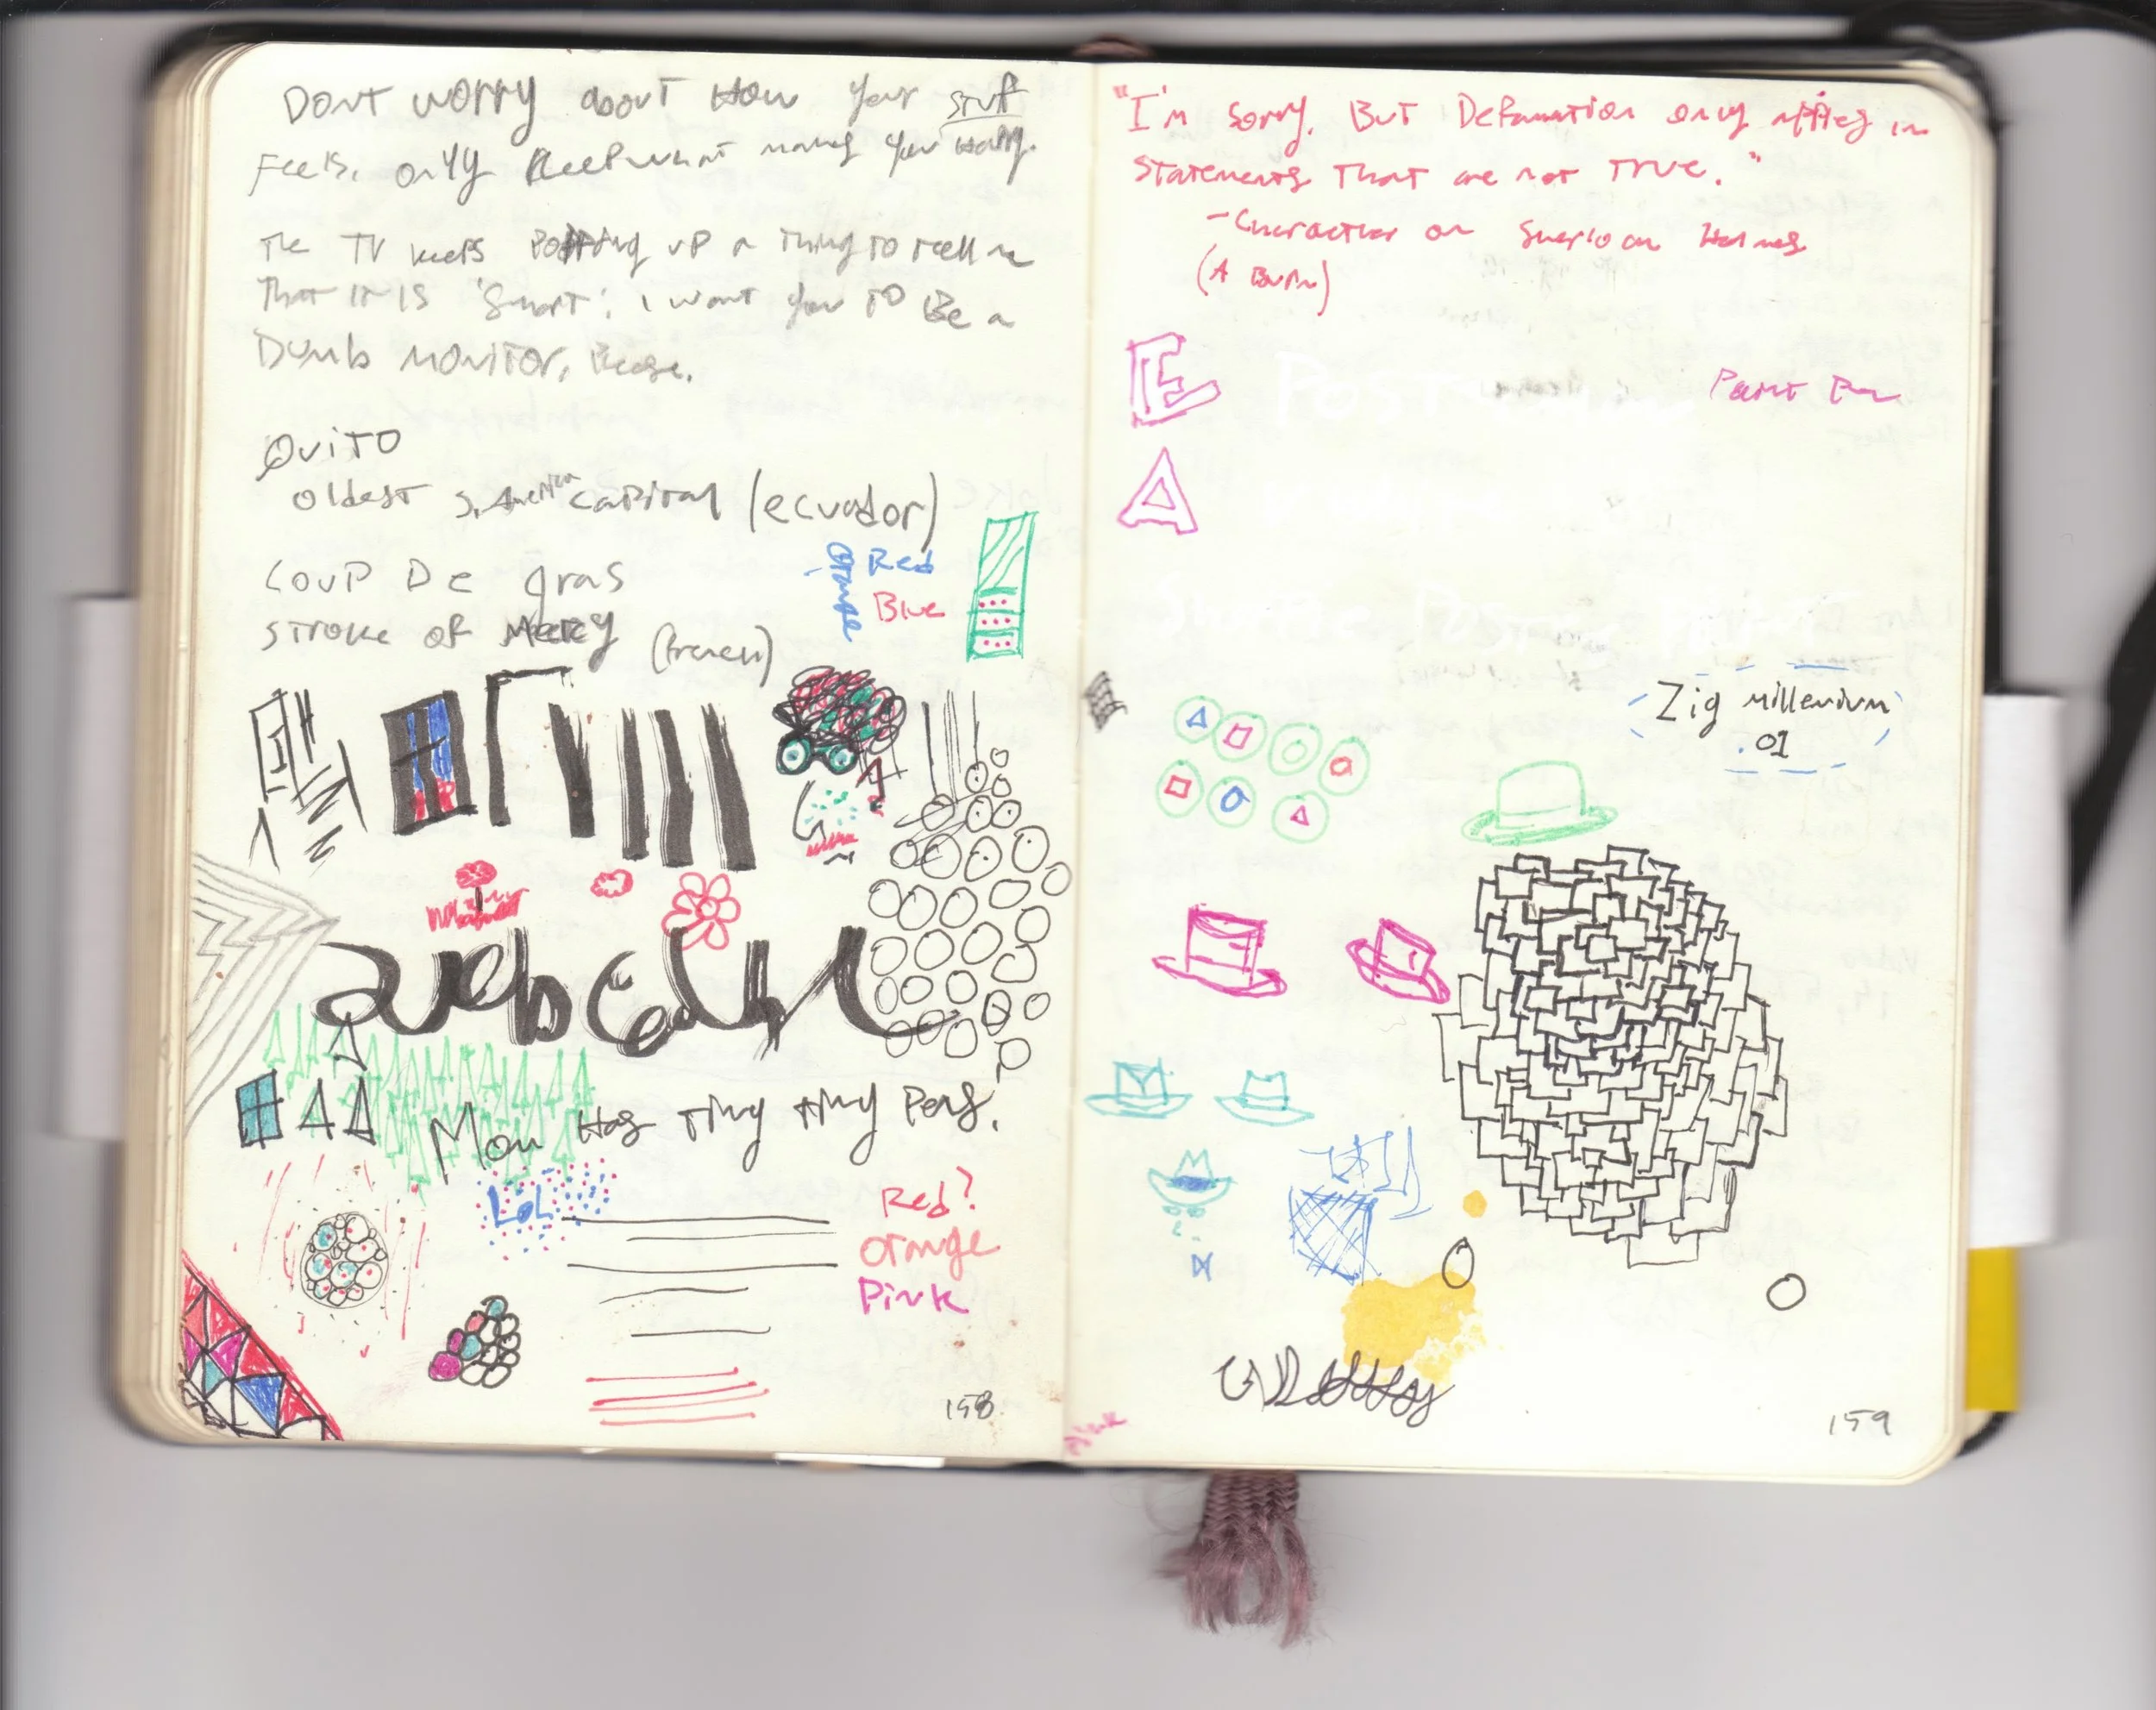 Dont worry about How your stuff
Feels, only keep what makes you Happy.
The TV keeps popping up a thing to tell me
That it is 'Smart'. I want you to Be a
Dumb monitor, Please.
Quito
oldest S. American capital (ecuador)
Coup De gras
stroke of Mercy (french)
orange
Red
Blue
Mom Has Tiny tiny Pens!
LOL
Red?
Orange
Pink
158
"I'm sorry, But Defamation only applies in
statements that are not true."
-Character on Sherlock Holmes
(A Burn)
E
Paint Pen
A
Zig millenium
.01
Pink
159